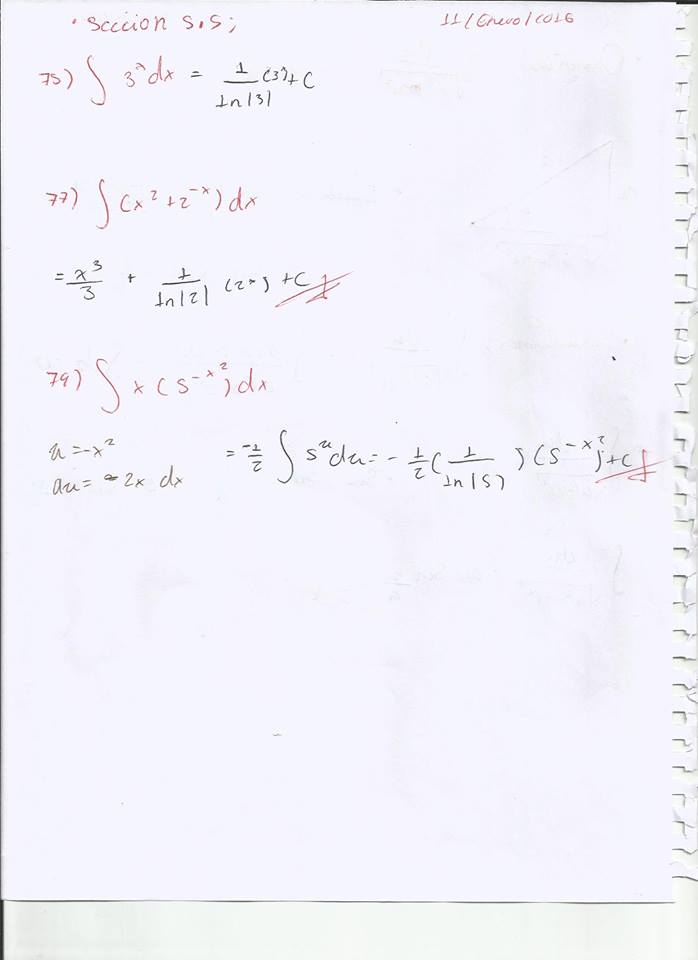 · Seccion 5.5; 11/Enero/2016
75) ∫ 3ˣ dx = 1/ln|3| (3ˣ) + C
77) ∫ (x² + 2⁻ˣ) dx
= x³/3 + 1/ln|2| (2ˣ) + C
79) ∫ x (5^(-x²)) dx
u = -x² = -1/2 ∫ 5ᵘ du = - 1/2 (1/ln|5|) (5^(-x²)) + C
du = -2x dx